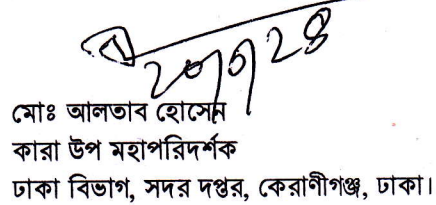 মোঃ আলতাব হোসেন
কারা উপ মহাপরিদর্শক
ঢাকা বিভাগ, সদর দপ্তর, কেরাণীগঞ্জ, ঢাকা।